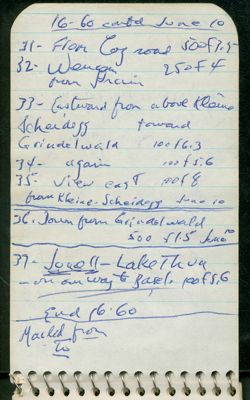 16-60 contd June 10
31- From Cog road 500f3.5
32- Wengen 250f4
from train
33- Eastward from above Kleine
Scheidegg toward
Grindelwald 100f6.3
34- again 100f5.6
35- View east 100f8
from Kleine-Scheidegg June 10
36. Down from Grindelwald
500 f3.5 June 10
37- June 11 - Lake Thun
- on our way to Basel. 100f5.6
End 16-60
Mailed from
To